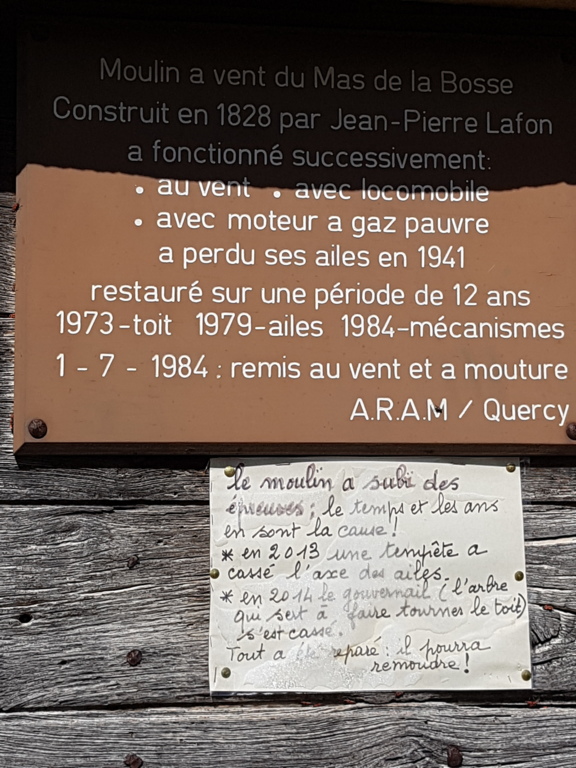 Moulin a vent du Mas de la Bosse
Construit en 1828 par Jean-Pierre Lafon
a fonctionné successivement:
• au vent • avec locomobile
• avec moteur a gaz pauvre
a perdu ses ailes en 1941
restauré sur une période de 12 ans
1973-toit 1979-ailes 1984-mécanismes
1 - 7 - 1984 : remis au vent et a mouture
A.R.A.M / Quercy
le moulin a subi des
épreuves ; le temps et les ans
en sont la cause !
* en 2013 une tempête a
cassé l'axe des ailes.
* en 2014 le gouvernail (l'arbre
qui sert à faire tourner le toit)
s'est cassé.
Tout a été réparé : il pourra
remoudre !